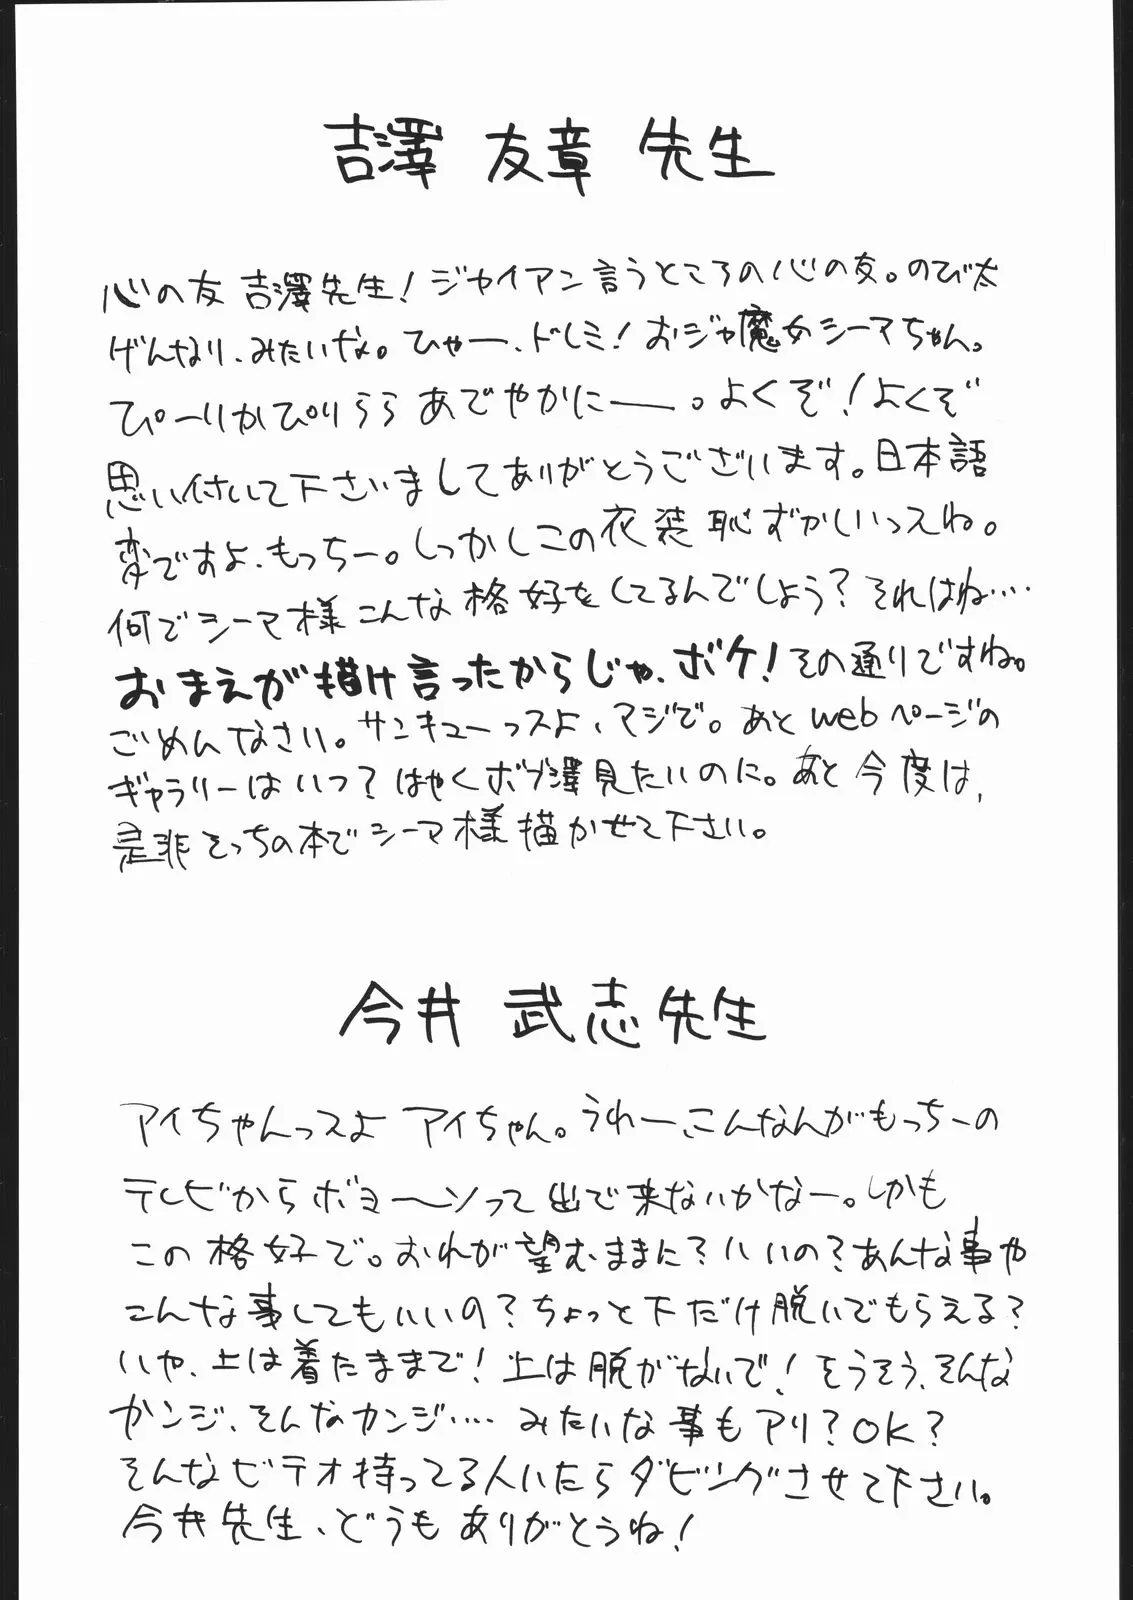 吉澤 友章 先生
心の友 吉澤先生!ジャイアン言うところの心の友。のび太
げんなり、みたいな。ひゃー、ドレミ!おジャ魔女シーマちゃん。
ぴーりかぴりらら あでやかにー。よくぞ!よくぞ
思い付いて下さいましてありがとうございます。日本語
変ですよ、もっちー。しっかしこの衣装恥ずかしいっスね。
何でシーマ様こんな格好をしてるんでしょう?それはね…
おまえが描け言ったからじゃ、ボケ!その通りですね。
ごめんなさい。サンキューっスよ、マジで。あとwebページの
ギャラリーはいつ?はやくボブ澤見たいのに。あと今度は、
是非そっちの本でシーマ様描かせて下さい。
今井 武志先生
アイちゃんっスよ アイちゃん。うれー、こんなんがもっちーの
テレビからボヨ〜ンって出て来ないかなー。しかも
この格好で。おれが望むままに?いいの?あんな事や
こんな事してもいいの?ちょっと下だけ脱いでもらえる?
いや、上は着たままで!上は脱がないで!そうそう、そんな
カンジ、そんなカンジ…みたいな事もアリ?OK?
そんなビデオ持ってる人いたらダビングさせて下さい。
今井先生、どうもありがとうね!